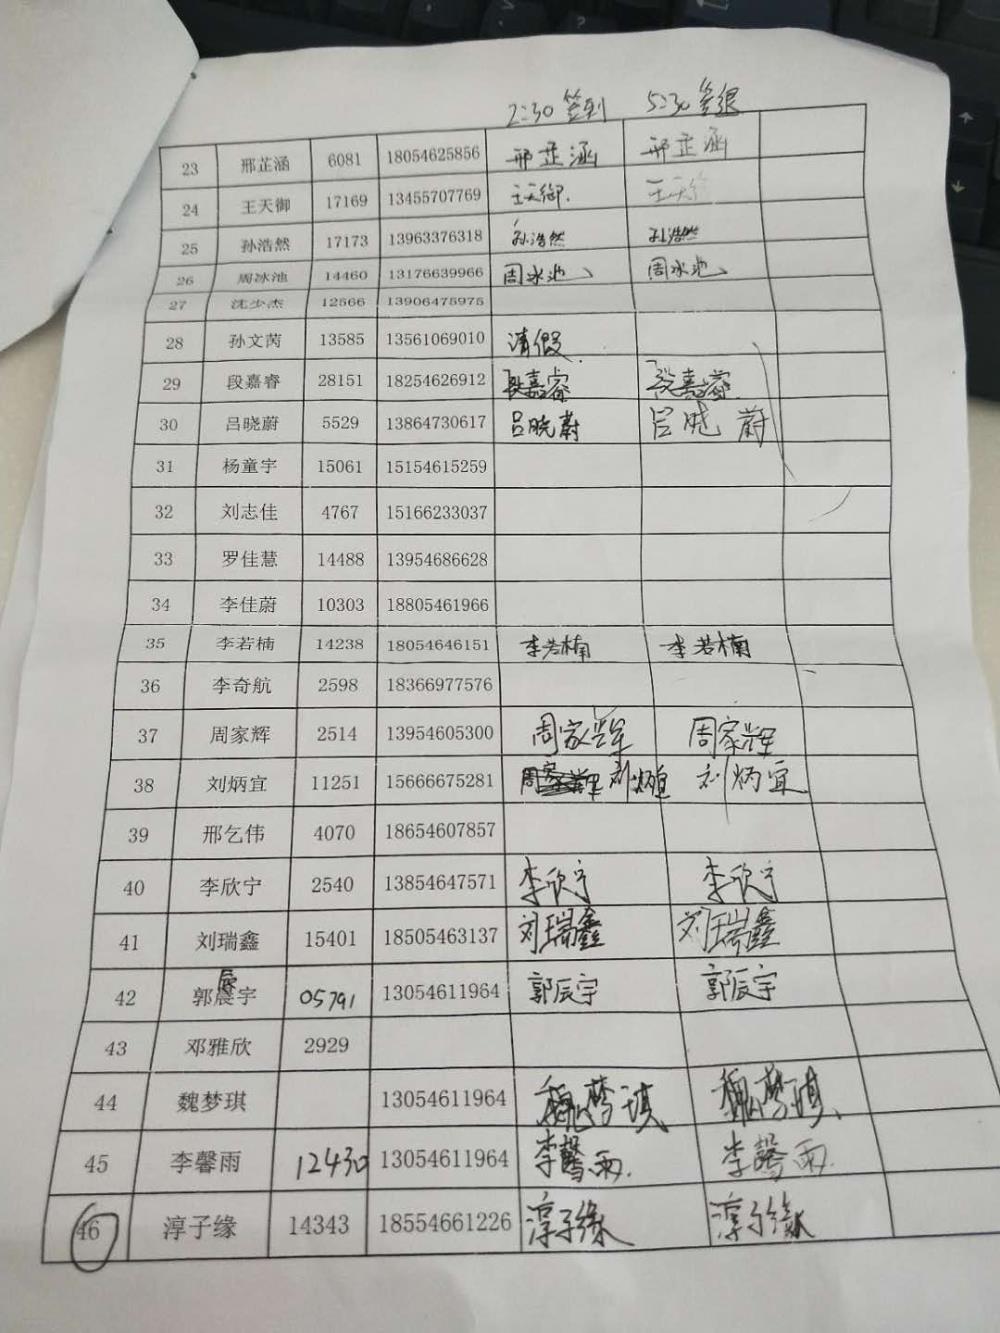 2:30 签到 5:30 签退
23 邢芷涵 6081 18054625856 邢芷涵 邢芷涵
24 王天御 17169 13455707769 王天御. 王天御
25 孙浩然 17173 13963376318 孙浩然 孙浩然
26 周冰池 14460 13176639966 周冰池 周冰池
27 沈少杰 12566 13906475975
28 孙文苪 13585 13561069010 请假
29 段嘉睿 28151 18254626912 段嘉睿 段嘉睿
30 吕晓蔚 5529 13864730617 吕晓蔚 吕晓蔚
31 杨童宇 15061 15154615259
32 刘志佳 4767 15166233037
33 罗佳慧 14488 13954686628
34 李佳蔚 10303 18805461966
35 李若楠 14238 18054646151 李若楠 李若楠
36 李奇航 2598 18366977576
37 周家辉 2514 13954605300 周家辉 周家辉
38 刘炳宜 11251 15666675281 周家辉 刘炳宜 刘炳宜
39 邢乞伟 4070 18654607857
40 李欣宁 2540 13854647571 李欣宁 李欣宁
41 刘瑞鑫 15401 18505463137 刘瑞鑫 刘瑞鑫
辰
42 郭晨宇 05791 13054611964 郭辰宇 郭辰宇
43 邓雅欣 2929
44 魏梦琪 13054611964 魏梦琪 魏梦琪
45 李馨雨 12430 13054611964 李馨雨. 李馨雨.
46 淳子缘 14343 18554661226 淳子缘 淳子缘